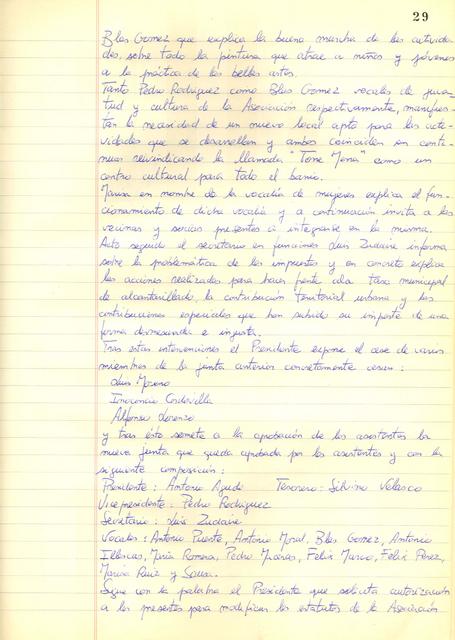 29
Blas Gomez que explica la buena marcha de las activida-
des, sobre todo la pintura que atrae a niños y jóvenes
a la práctica de las bellas artes.
Tanto Pedro Rodriguez como Blas Gomez vocales de juven-
tud y cultura de la Asociación respectivamente, manifies-
tan la necesidad de un nuevo local apto para las acti-
vidades que se desarrollan y ambos coinciden en conti-
nuar reivindicando la llamada "Torre Mena" como un
centro cultural para todo el barrio.
Marisa en nombre de la vocalía de mujeres explica el fun-
cionamiento de dicha vocalía y a continuación invita a las
vecinas y socias presentes a integrarse en la misma.
Acto seguido el secretario en funciones Luis Zudaire informa
sobre la problemática de los impuestos y en concreto explica
las acciones realizadas para hacer frente a la tasa municipal
de alcantarillado, la contribución territorial urbana y las
contribuciones especiales que han subido su importe de una
forma desmesurada e injusta.
Tras estas intervenciones el Presidente expone el cese de varios
miembros de la junta anterior concretamente cesan:
Luis Moreno
Inocencio Cordovilla
Alfonso Lorenzo
y tras ésto somete a la aprobación de los asistentes la
nueva junta que queda aprobada por los asistentes y con la
siguiente composición:
Presidente: Antonio Agudo Tesorero: Silvino Velasco
Vicepresidente: Pedro Rodriguez
Secretario: Luis Zudaire
Vocales: Antonio Puente, Antonio Moral, Blas Gomez, Antonio
Illescas, Maria Romera, Pedro Felix Marco, Felix Perez,
Marisa Ruiz y Sousa.
Sigue con la palabra el Presidente que solicita autorización
a los presentes para modificar los estatutos de la Asociación